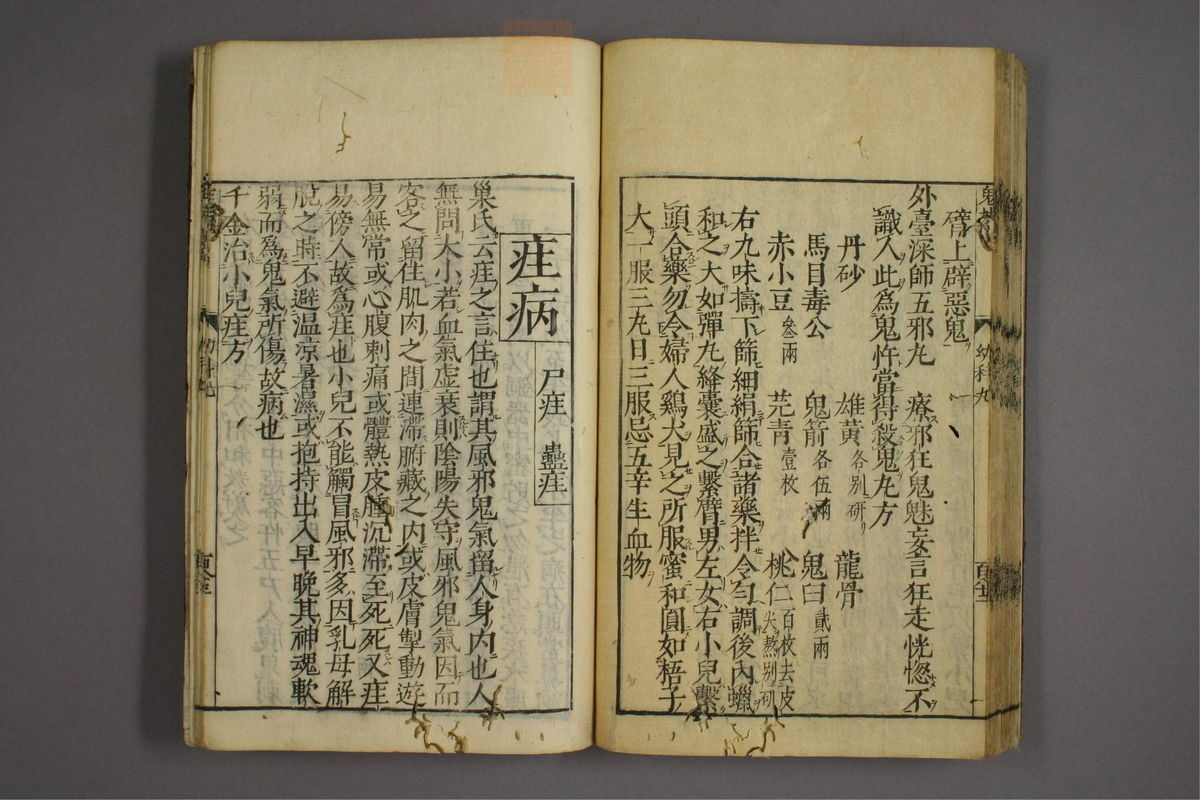 臂上辟惡鬼
外臺深師五邪丸　療邪狂鬼魅妄言狂走恍惚不
識入此為鬼忤當得殺鬼丸方
丹砂　雄黃各別研　龍骨
馬目毒公　鬼箭各伍兩　鬼臼貳兩
赤小豆叄兩　芫青壹枚　桃仁百枚去皮尖熬別研
右九味擣下篩細絹篩合諸藥拌令勻調後內蠟
和之大如彈丸絳囊盛之繫臂男左女右小兒繫
頭合藥勿令婦人鷄犬見之所服蜜和圓如梧子
大一服三丸日三服忌五辛生血物
幼科九
疰病
尸疰　蠱疰
巢氏云疰之言住也謂其風邪鬼氣留人身內也人
無問大小若血氣虛衰則陰陽失守風邪鬼氣因而
客之留住肌肉之間連滯腑藏之内或皮膚掣動遊
易無常或心腹刺痛或體熱皮腫沉滯至死死又疰
易傍人故爲疰也小兒不能觸冒風邪多因乳母解
脫之時不避温凉暑濕或抱持出入早晚其神魂軟
弱而爲鬼氣所傷故病也
千金治小兒疰方
幼科九